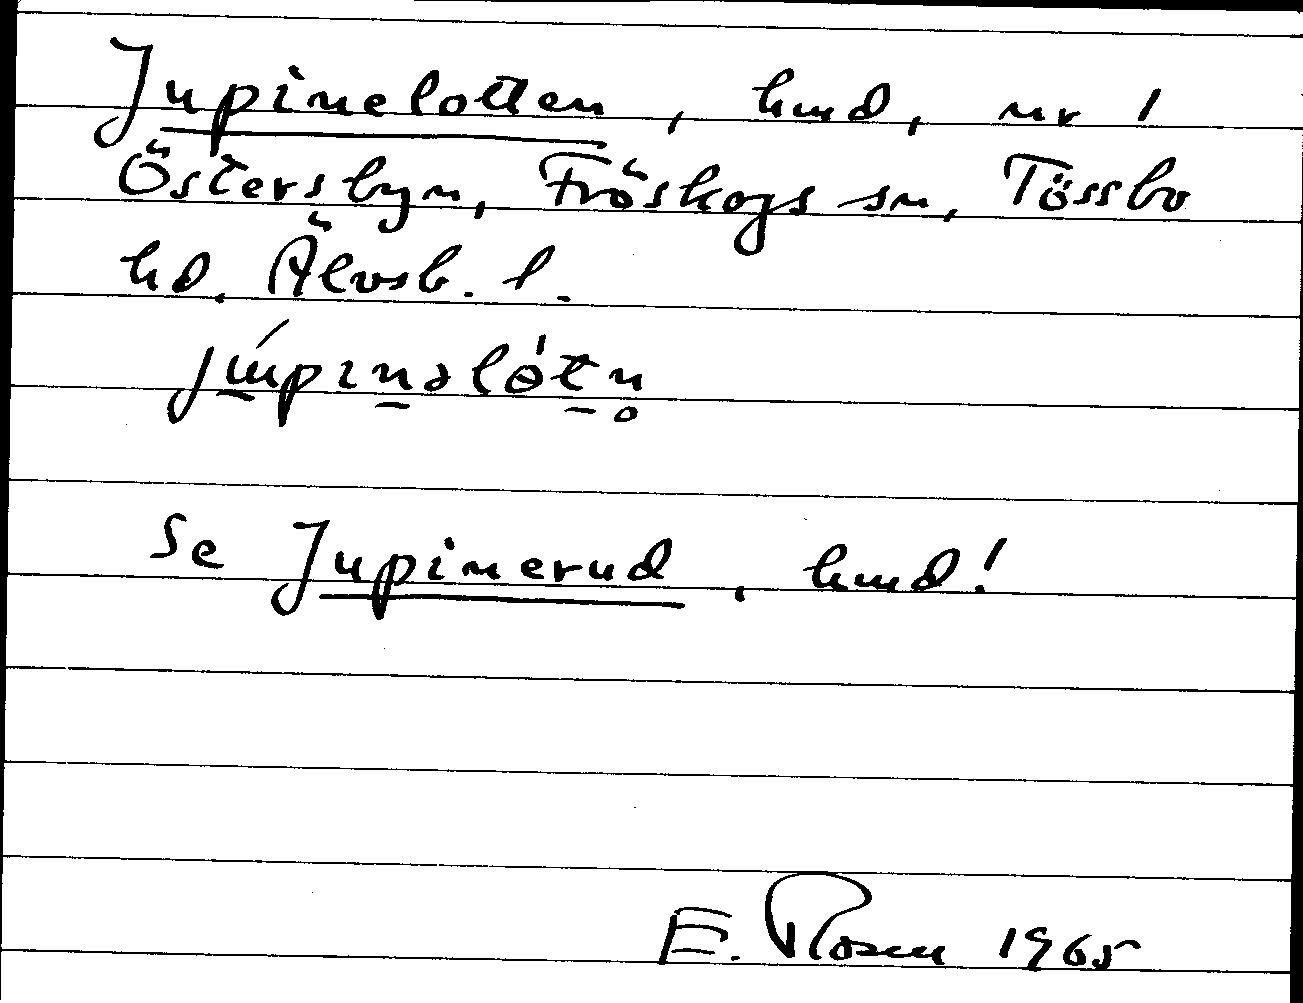 Jupinelotten, hmd, nr 1
Östersbyn, Fröskogs sn, Tössbo
hd. Älvsb. l.
Se Jupinerud, hmd!
E. Rosen 1965